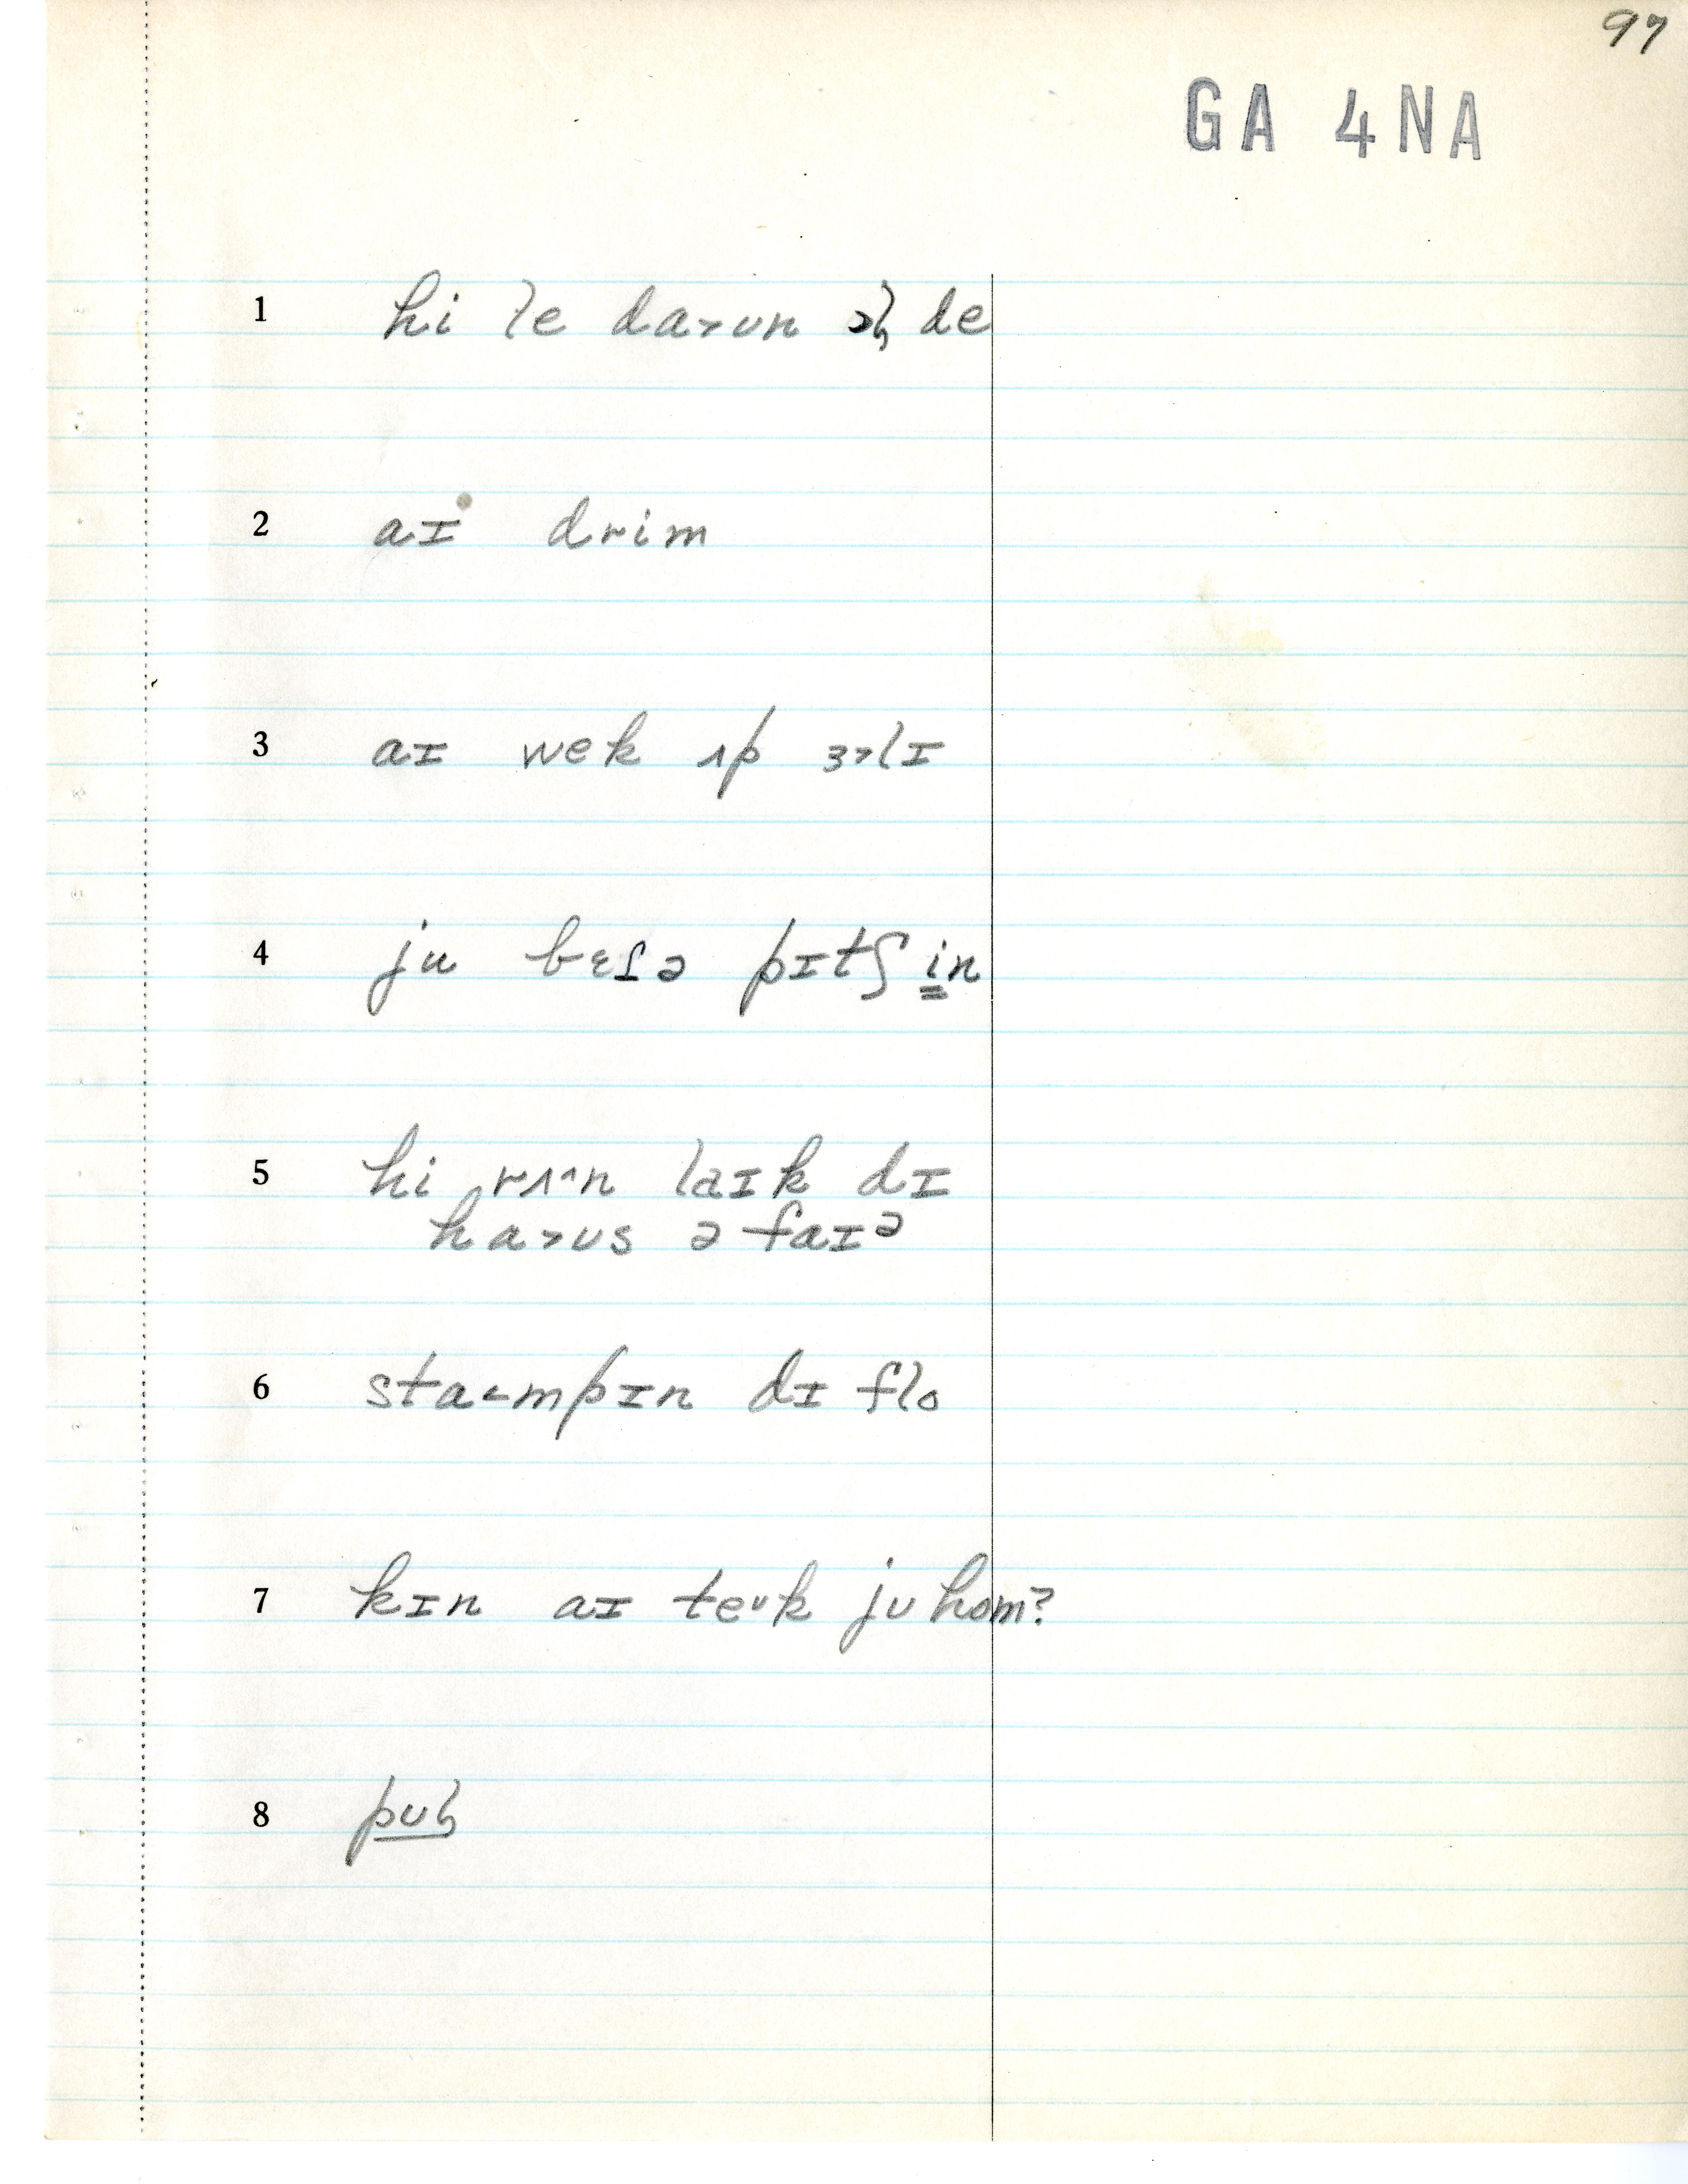 97
GA 4NA
1 hi le da˃ʊn ɔɫ de
2 aɪ drim
3 aɪ wek ʌp ɜ˃lɪ
4 ju bɛɾə pɪtʃ i̳n
5 hi rʌ^n laɪk dɪ
ha˃ʊs ə faɪᵊ
6 sta˂mpɪn dɪ flo
7 kɪn aɪ teᶸk jʊ hom?
8 pʊɫ